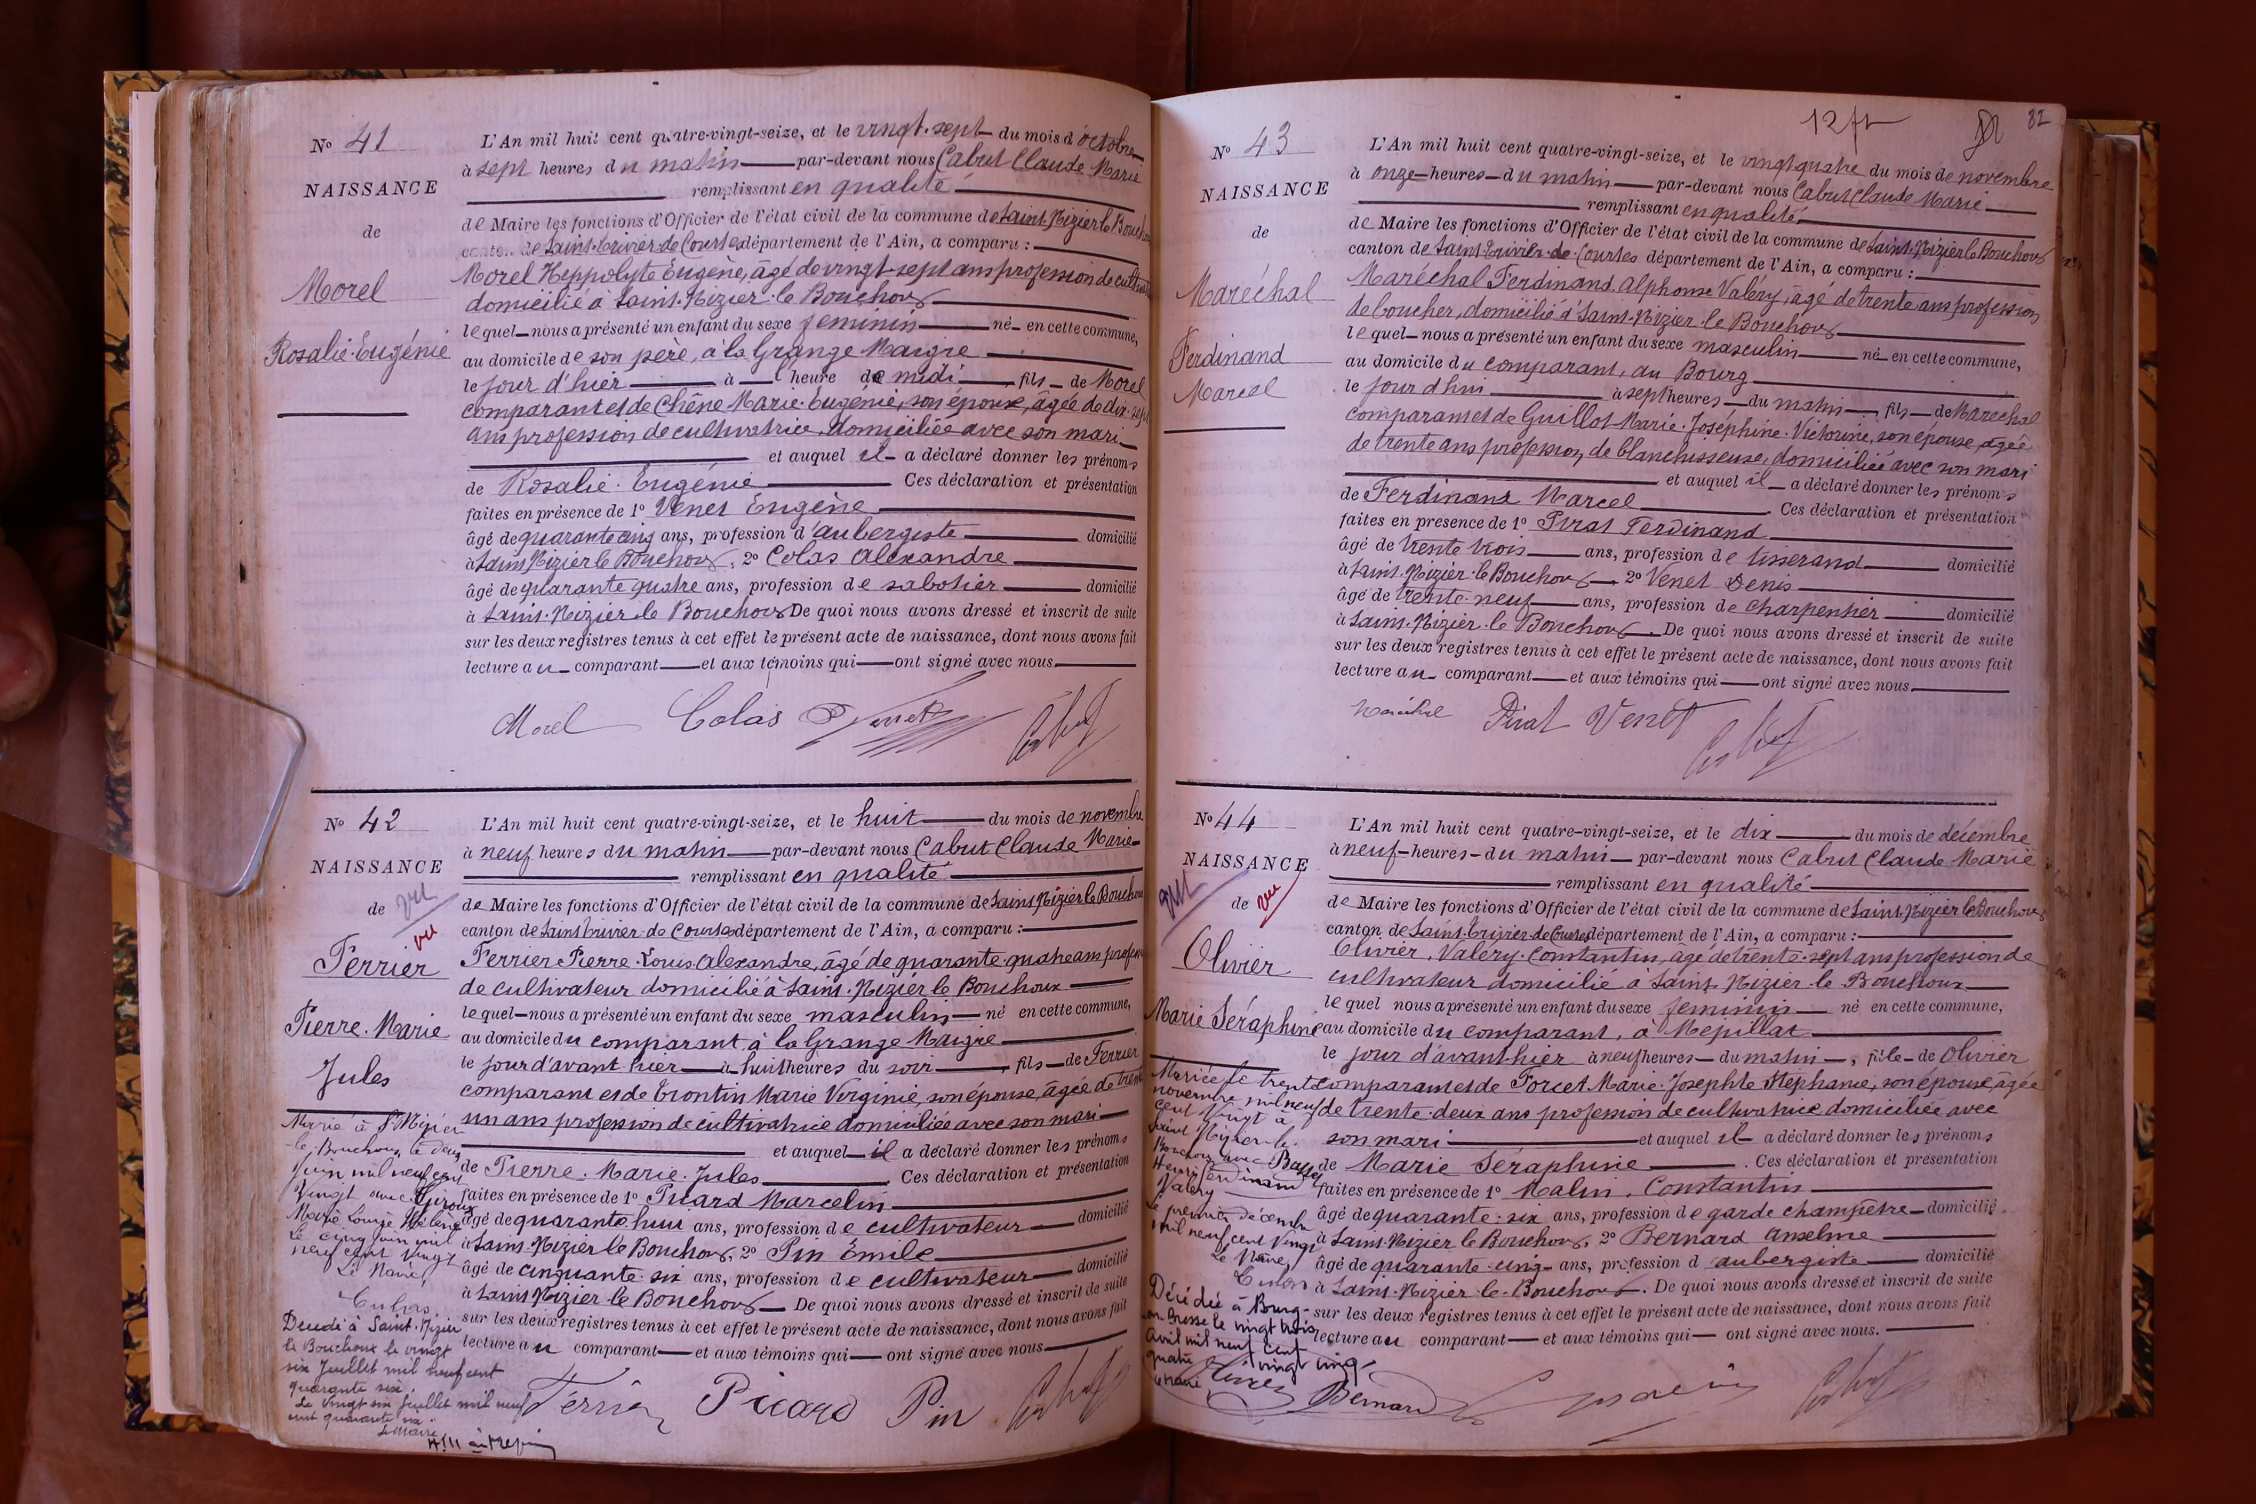 No 41
NAISSANCE
de
Morel
Rosalie-Eugénie
L'An mil huit cent quatre-vingt-seize, et le vingt-sept du mois d'octobre
à sept heures du matin par-devant nous Cabut Claude Marie
remplissant en qualité
de Maire les fonctions d'Officier de l'état civil de la commune de Saint-Nizier le Bouchoux
canton de Saint-Trivier-de-Courtes département de l'Ain, a comparu :
Morel Heppolyte Eugène, âgé de vingt-sept ans profession de cultivateur
domicilié à Saint-Nizier-le-Bouchoux
lequel nous a présenté un enfant du sexe feminin né en cette commune,
au domicile de son père, à la Grange Maigre
le jour d'hier à heure de midi, fils de Morel
comparant et de Chêne Marie-Eugénie, son épouse, âgée de dix-sept
ans profession de cultivatrice, domiciliée avec son mari
et auquel il a déclaré donner les prénoms
de Rosalie-Eugénie Ces déclaration et présentation
faites en présence de 1o Venet Eugène
âgé de quarante cinq ans, profession d'aubergiste domicilié
à Saint Nizier le Bouchoux, 2o Colas Alexandre
âgé de quarante quatre ans, profession de sabotier domicilié
à Saint-Nizier-le Bouchoux De quoi nous avons dressé et inscrit de suite
sur les deux registres tenus à cet effet le présent acte de naissance, dont nous avons fait
lecture au comparant et aux témoins qui ont signé avec nous
Morel Colas Venet Cabut
No 42
NAISSANCE
de
vu
vu
Ferrier
Pierre-Marie
Jules
Marié à St Nizier
le Bouchoux le deux
juin mil neuf cent
vingt avec Giroux
Marie Louise Hélène
Le cinq juin mil
neuf cent vingt
Le Maire,
Décédé à Saint-Nizier
le Bouchoux le vingt
six Juillet mil neuf cent
quarante six.
Le vingt six Juillet mil neuf
cent quarante six
Le Maire
L'An mil huit cent quatre-vingt-seize, et le huit du mois de novembre
à neuf heures du matin par-devant nous Cabut Claude Marie
remplissant en qualité
de Maire les fonctions d'Officier de l'état civil de la commune de Saint Nizier le Bouchoux
canton de Saint-Trivier-de-Courtes département de l'Ain, a comparu :
Ferrier Pierre-Louis-Alexandre, âgé de quarante quatre ans profession
de cultivateur domicilié à Saint-Nizier le Bouchoux
lequel nous a présenté un enfant du sexe masculin né en cette commune,
au domicile du comparant à la Grange Maigre
le jour d'avant hier à huit heures du soir, fils de Ferrier
comparant et de Trontin Marie Virginie, son épouse, âgée de trente
un ans profession de cultivatrice domiciliée avec son mari
et auquel il a déclaré donner les prénoms
de Pierre-Marie-Jules. Ces déclaration et présentation
faites en présence de 1o Picard Marcelin
âgé de quarante huit ans, profession de cultivateur domicilié
à Saint-Nizier le Bouchoux, 2o Pin Emile
âgé de cinquante-six ans, profession de cultivateur domicilié
à Saint Nizier-le Bouchoux De quoi nous avons dressé et inscrit de suite
sur les deux registres tenus à cet effet le présent acte de naissance, dont nous avons fait
lecture au comparant et aux témoins qui ont signé avec nous
Ferrier Picard Pin Cabut
82
No 43
NAISSANCE
de
Maréchal
Ferdinand
Marcel
L'An mil huit cent quatre-vingt-seize, et le vingt quatre du mois de novembre
à onze heures du matin par-devant nous Cabut Claude Marie
remplissant en qualité
de Maire les fonctions d'Officier de l'état civil de la commune de Saint-Nizier le Bouchoux
canton de Saint-Trivier-de-Courtes département de l'Ain, a comparu :
Maréchal Ferdinand Alphonse Valéry, âgé de trente ans profession
de boucher, domicilié à Saint-Nizier le Bouchoux
lequel nous a présenté un enfant du sexe masculin né en cette commune,
au domicile du comparant, au Bourg
le jour d'hui à sept heures du matin, fils de Maréchal
comparant et de Guillot Marie-Joséphine-Victorine, son épouse, âgée
de trente ans profession de blanchisseuse, domiciliée avec son mari
et auquel il a déclaré donner les prénoms
de Ferdinand Marcel. Ces déclaration et présentation
faites en presence de 1o Pirat Ferdinand
âgé de trente trois ans, profession de tisserand domicilié
à Saint-Nizier-le Bouchoux, 2o Venet Denis
âgé de trente-neuf ans, profession de charpentier domicilié
à Saint-Nizier-le Bouchoux. De quoi nous avons dressé et inscrit de suite
sur les deux registres tenus à cet effet le présent acte de naissance, dont nous avons fait
lecture au comparant et aux témoins qui ont signé avec nous,
Maréchal Pirat Venet Cabut
No 44
NAISSANCE
de
vu
vu
Olivier
Marie Séraphine
Mariée le trente
novembre mil neuf
cent vingt à
Saint Nizier-le-
Bouchoux avec
Henri Ferdinand
Valéry
Le premier décembre
mil neuf cent vingt
Le Maire,
Décédée à Bourg-
en-Bresse le vingt trois
avril mil neuf cent
quatre vingt cinq
le maire
L'An mil huit cent quatre-vingt-seize, et le dix du mois de décembre
à neuf heures du matin par-devant nous Cabut Claude Marie
remplissant en qualité
de Maire les fonctions d'Officier de l'état civil de la commune de Saint-Nizier le Bouchoux
canton de Saint-Trivier-de-Courtes département de l'Ain, a comparu :
Olivier, Valéry-Constantin, âgé de trente-sept ans profession de
cultivateur domicilié à Saint-Nizier-le-Bouchoux
lequel nous a présenté un enfant du sexe feminin né en cette commune,
au domicile du comparant, à Mépillat
le jour d'avant-hier à neuf heures du matin, fille de Olivier
comparant et de Forcet Marie-Josephte Stéphanie, son épouse, âgée
de trente-deux ans profession de cultivatrice domiciliée avec
son mari et auquel il a déclaré donner les prénoms
de Marie Séraphine. Ces déclaration et présentation
faites en présence de 1o Malin, Constantin
âgé de quarante-six ans, profession de garde champêtre domicilié
à Saint-Nizier le Bouchoux, 2o Bernard Anselme
âgé de quarante-cinq ans, profession d aubergiste domicilié
à Saint-Nizier-le-Bouchoux. De quoi nous avons dressé et inscrit de suite
sur les deux registres tenus à cet effet le présent acte de naissance, dont nous avons fait
lecture au comparant et aux témoins qui ont signé avec nous.
Olivier Bernard Malin Cabut